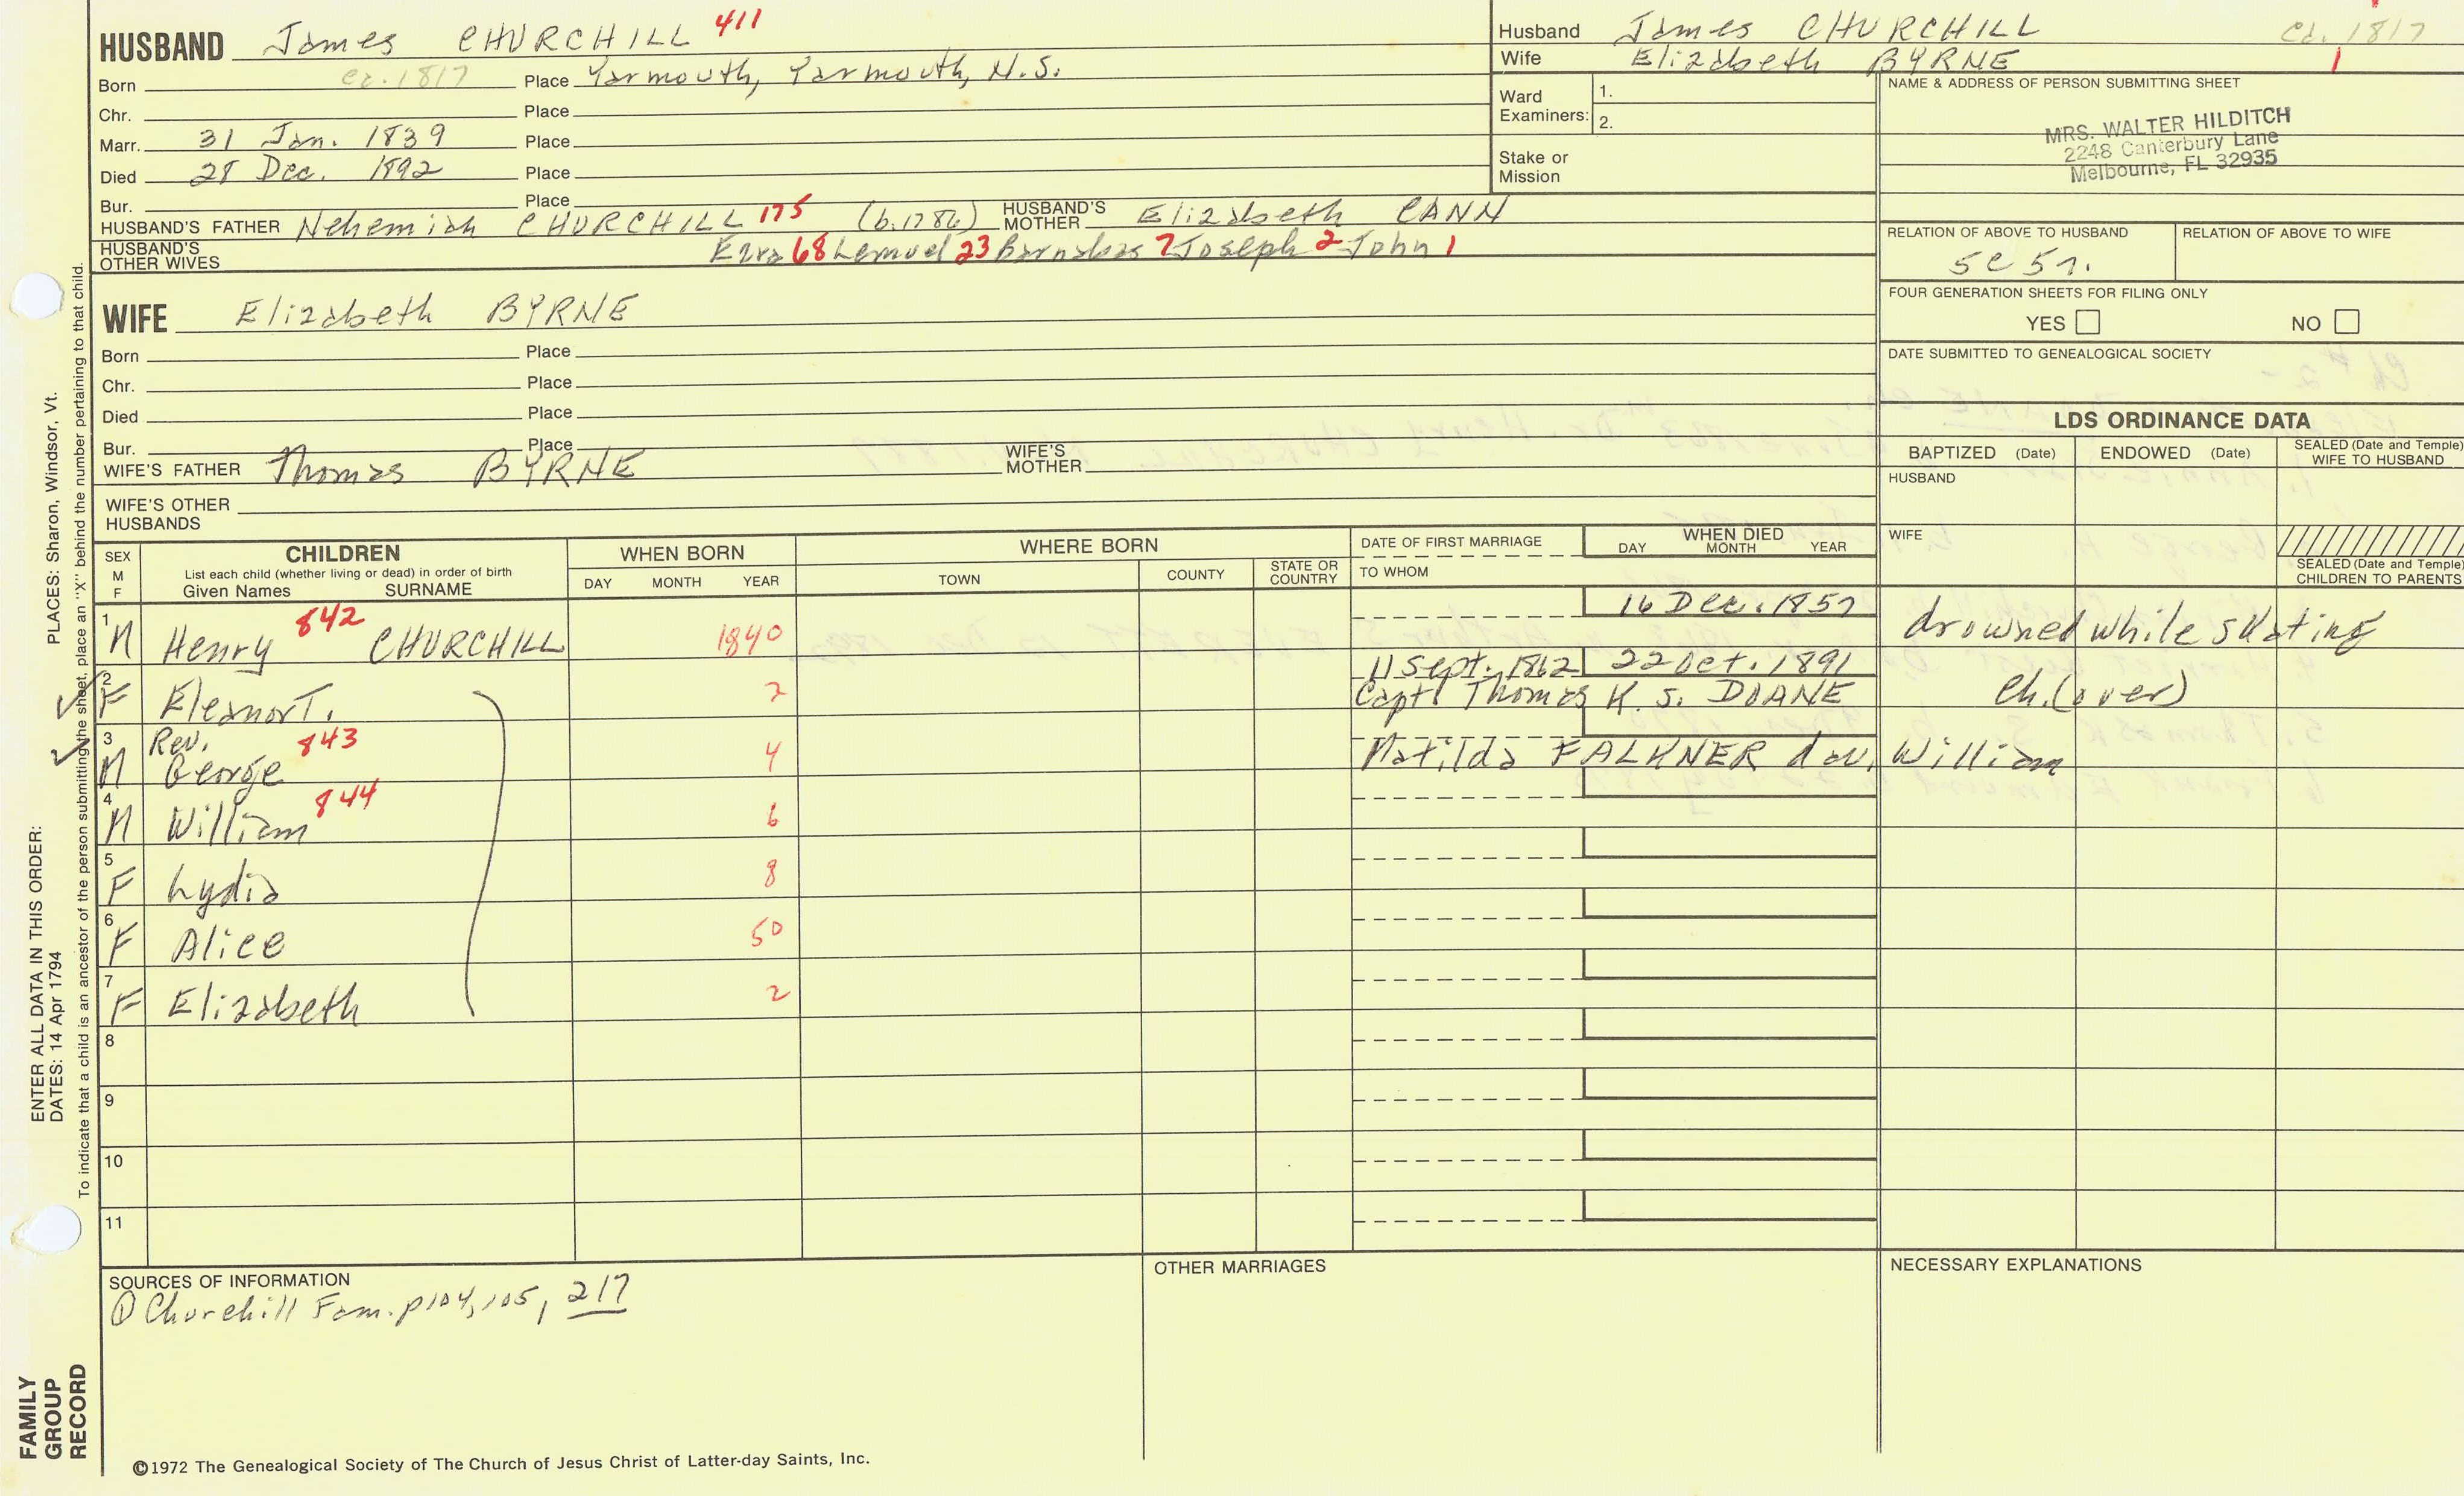 HUSBAND James CHURCHILL 411
Born ca. 1817 Place Yarmouth, Yarmouth, N.S.
Chr. Place
Marr. 31 Jan. 1839 Place
Died 28 Dec. 1892 Place
Bur. Place
HUSBAND'S FATHER Nehemiah CHURCHILL 175 (b.1786) HUSBAND'S MOTHER Elizabeth CANN
HUSBAND'S OTHER WIVES Ezra 68 Lemuel 23 Barnabas 7 Joseph 2 John 1
Husband James CHURCHILL ca. 1817
Wife Elizabeth BYRNE 1
Ward Examiners: 1.
2.
Stake or Mission
NAME & ADDRESS OF PERSON SUBMITTING SHEET
MRS. WALTER HILDITCH
2248 Canterbury Lane
Melbourne, FL 32935
RELATION OF ABOVE TO HUSBAND RELATION OF ABOVE TO WIFE
5c 5r.
FOUR GENERATION SHEETS FOR FILING ONLY
YES NO
DATE SUBMITTED TO GENEALOGICAL SOCIETY
WIFE Elizabeth BYRNE
Born Place
Chr. Place
Died Place
Bur. Place
WIFE'S FATHER Thomas BYRNE WIFE'S MOTHER
WIFE'S OTHER HUSBANDS
LDS ORDINANCE DATA
BAPTIZED (Date) ENDOWED (Date) SEALED (Date and Temple) WIFE TO HUSBAND
HUSBAND
WIFE
SEALED (Date and Temple) CHILDREN TO PARENTS
SEX M F CHILDREN List each child (whether living or dead) in order of birth Given Names SURNAME WHEN BORN DAY MONTH YEAR WHERE BORN TOWN COUNTY STATE OR COUNTRY DATE OF FIRST MARRIAGE TO WHOM WHEN DIED DAY MONTH YEAR
1 M Henry 842 CHURCHILL 1840 16 Dec. 1857 drowned while skating
2 F Eleanor T. 2 11 Sept. 1862 22 Oct. 1891
Capt. Thomas K. S. DOANE Ch. (over)
3 M Rev. George 843 4 Matilda FALKNER dau. William
4 M William 844 6
5 F Lydia 8
6 F Alice 50
7 F Elizabeth 2
8
9
10
11
SOURCES OF INFORMATION
① Churchill Fam. p104, 105, 217
OTHER MARRIAGES
NECESSARY EXPLANATIONS
©1972 The Genealogical Society of The Church of Jesus Christ of Latter-day Saints, Inc.
FAMILY GROUP RECORD
ENTER ALL DATA IN THIS ORDER:
DATES: 14 Apr 1794 PLACES: Sharon, Windsor, Vt.
To indicate that a child is an ancestor of the person submitting the sheet, place an "X" behind the number pertaining to that child.